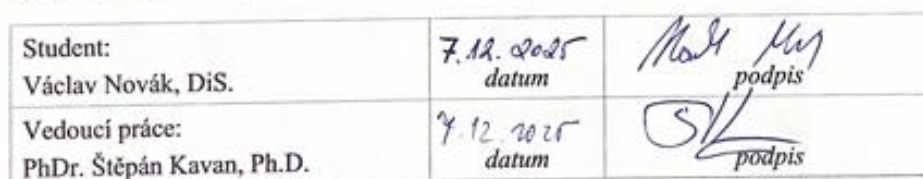 Student:
Václav Novák, DiS.
7.12.2025
datum
podpis
Vedoucí práce:
PhDr. Štěpán Kavan, Ph.D.
7.12.2025
datum
podpis